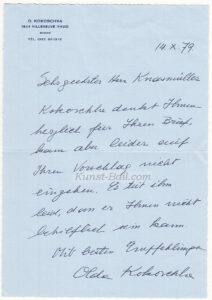 O. KOKOSCHKA
1844 VILLENEUVE VAUD
14. X. 79.
Sehr geehrter Herr Knaermüller
Kokoschka dankt Ihnen
herzlich für Ihren Brief,
kann aber leider auf
Ihren Vorschlag nicht
eingehen. Es tut ihm
leid, dass er Ihnen nicht
behilflich sein kann
Mit besten Empfehlungen
Olda Kokoschka
Kunst-Bail.com